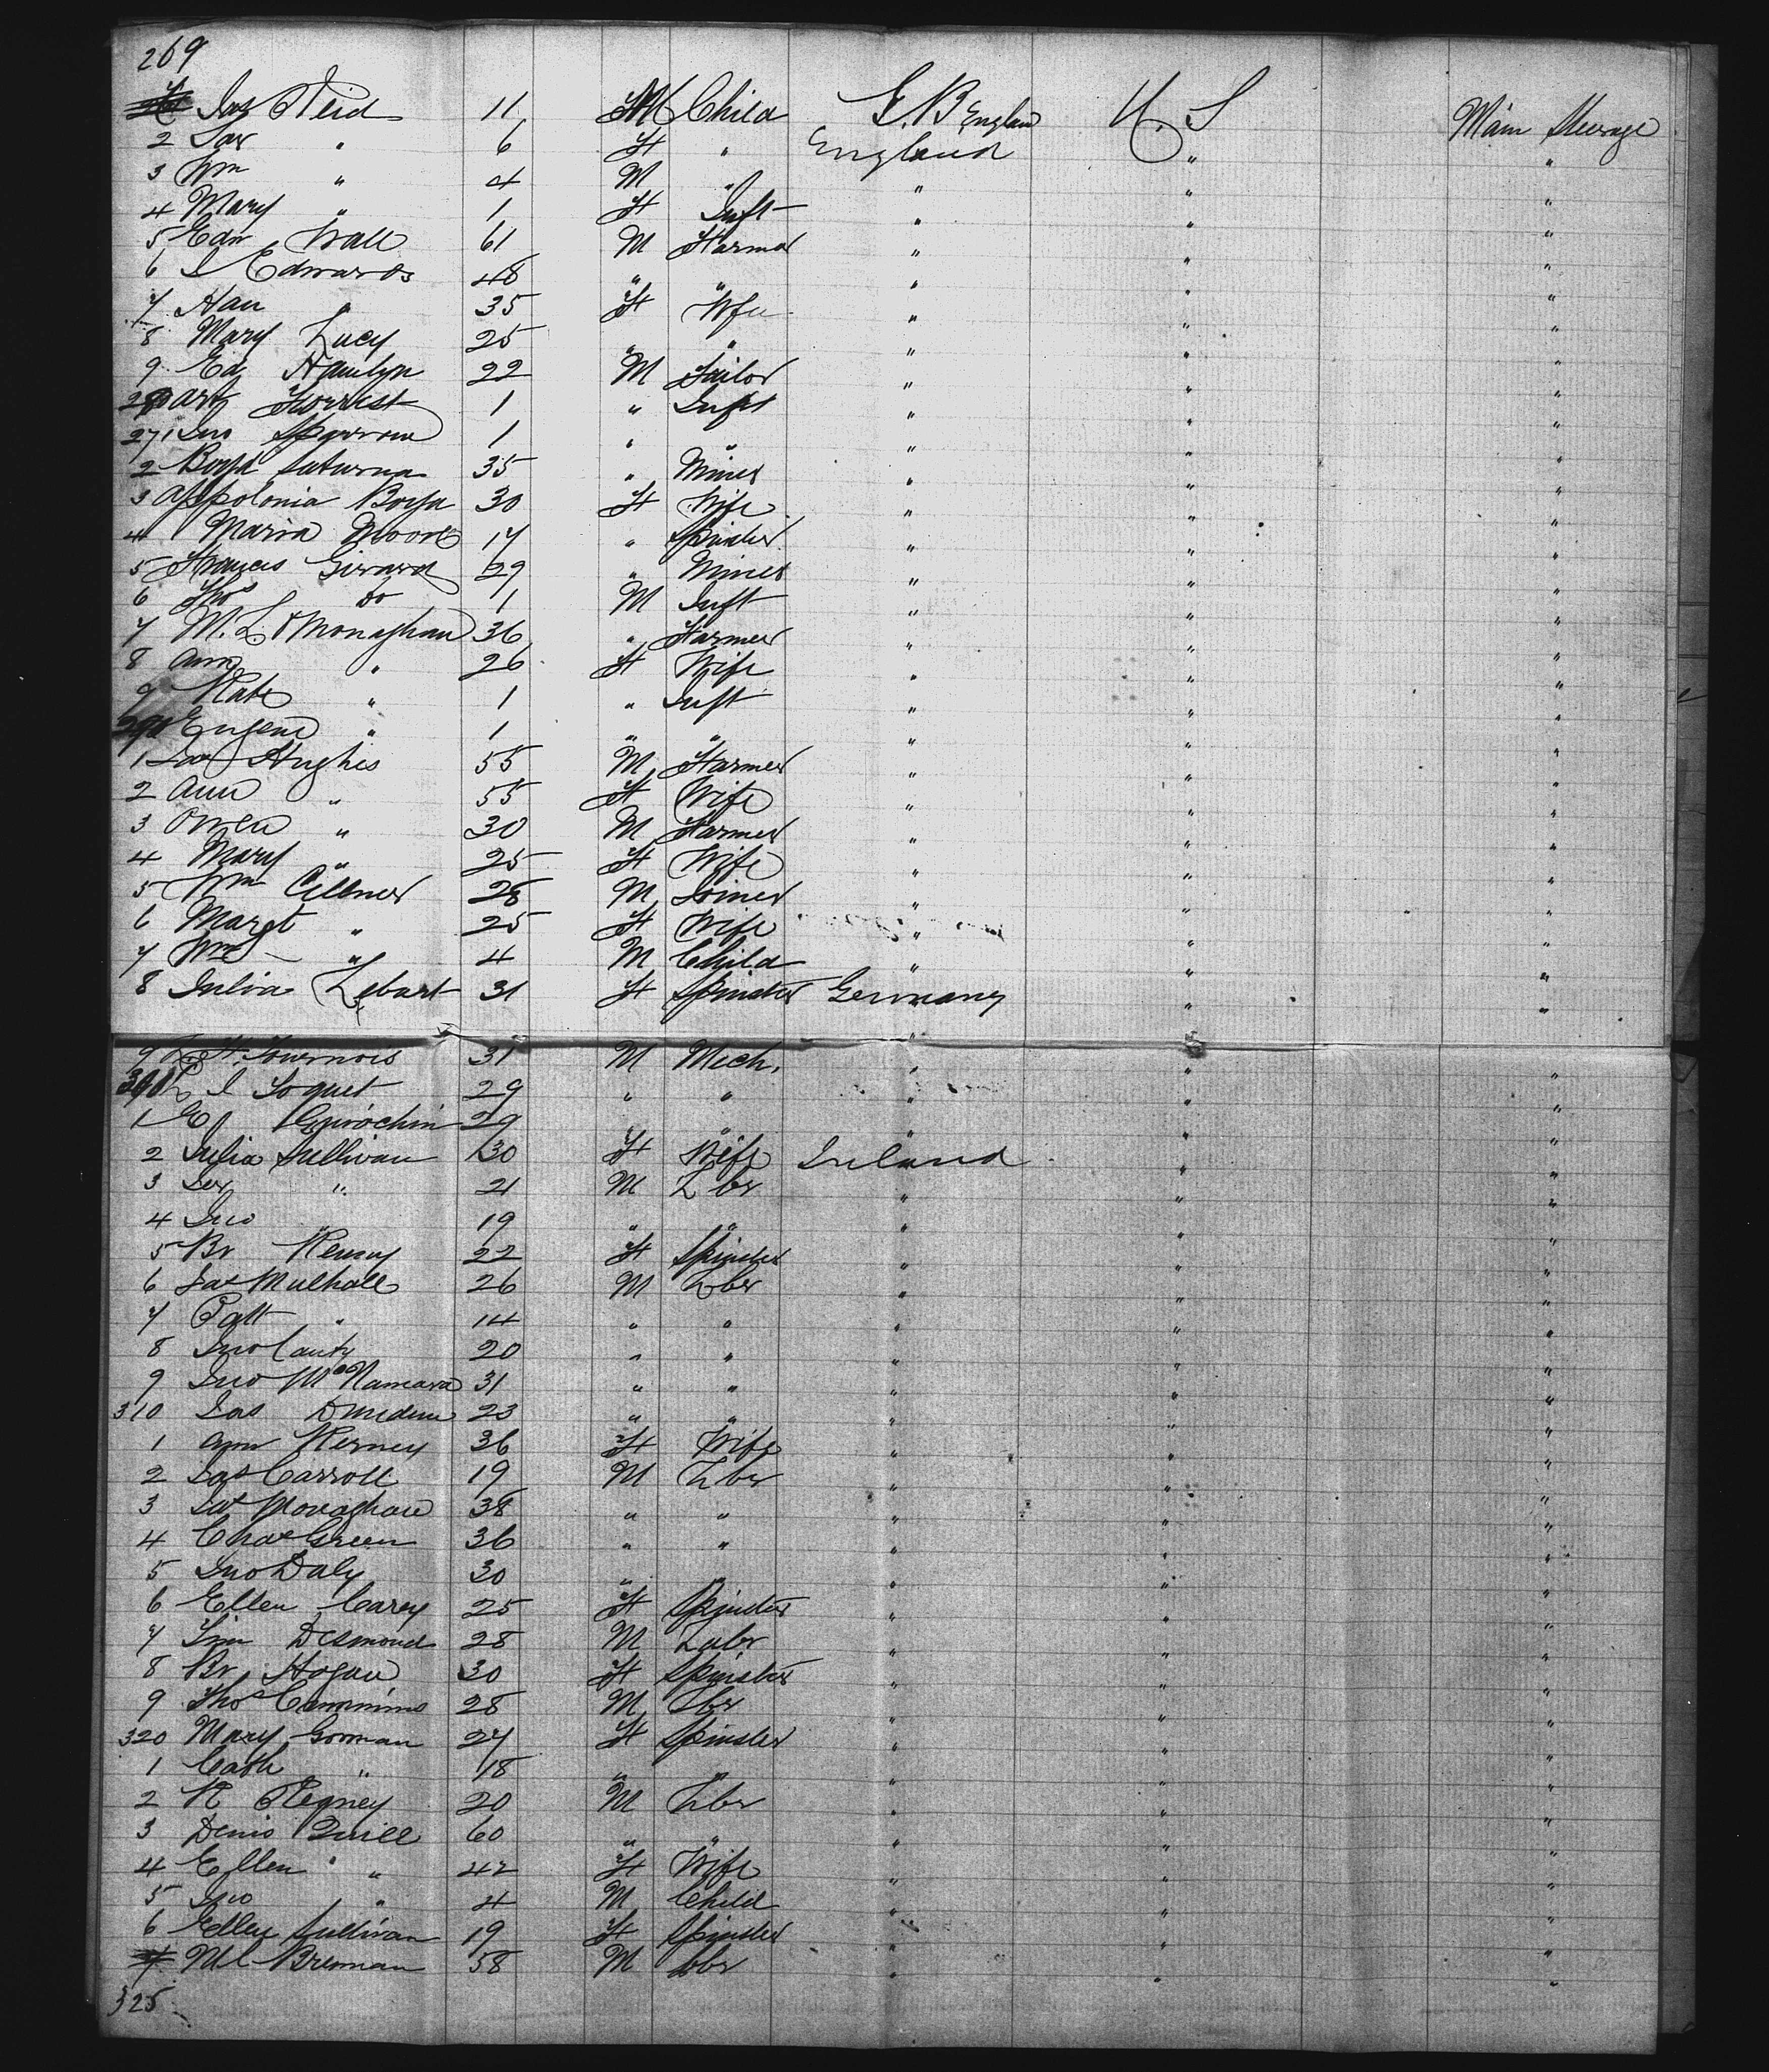 269
Jas Reid 11 M Child G. B England U. S Main Steerage
2 Jas " 6 F " England " "
3 Wm " 4 M " " " "
4 Mary " 1 F Inft " " "
5 Edw Wall 61 M Farmer " " "
6 J Edwards 48 " " " " "
7 Han " 35 F Wfe " " "
8 Mary Lucy 25 " " " " "
9 Ed Hamlyn 22 M Sailor " " "
Art Forrest 1 " Inft " " "
271 Jno Sparrow 1 " " " " "
2 Boya Saturna 35 " Miner " " "
3 Appolonia Boya 30 F Wife " " "
4 Maria Moore 17 " Spinster " " "
5 Frances Girard 29 " Miner " " "
6 Thos Do 1 M Inft " " "
7 M. L. Monaghan 36 " Farmer " " "
8 Ann " 26 F Wife " " "
9 Kate " 1 " Inft " " "
Eugene " 1 " " " " "
1 Jas Hughes 55 M Farmer " " "
2 Ann " 55 F Wife " " "
3 Owen " 30 M Farmer " " "
4 Mary " 25 F Wife " " "
5 Wm 28 M Joiner " " "
6 Margt " 25 F Wife " " "
7 Wm " 4 M Child " " "
8 Julia Lebart 31 F Spinster Germany " "
9 Fournois 31 M Mech. " " "
J Foquet 29 " " " " "
1 E 29 " " " " "
2 Julia Sullivan 30 F Wife Ireland " "
3 Jer " 21 M Lbr " " "
4 Jno " 19 " " " " "
5 Br Kenny 22 F Spinster " " "
6 Jas Mulhall 26 M Lbr " " "
7 Patt " 14 " " " " "
8 Jno Canty 20 " " " " "
9 Jno McNamara 31 " " " " "
310 Jas 23 " " " " "
1 Ann Kerney 36 F Wife " " "
2 Jas Carroll 19 M Lbr " " "
3 Jas Monaghan 38 " " " " "
4 Chas Green 36 " " " " "
5 Jno Daly 30 " " " " "
6 Ellen Carey 25 F Spinster " " "
7 Tim Desmond 28 M Labr " " "
8 Br Hogan 30 F Spinster " " "
9 Thos Cummins 28 M Lbr " " "
320 Mary Gorman 27 F Spinster " " "
1 Cath " 18 " " " " "
2 20 M Lbr " " "
3 Denis Quill 60 " " " " "
4 Ellen " 42 F Wife " " "
5 Jno " 4 M Child " " "
6 Ellen Sullivan 19 F Spinster " " "
7 Ml Brennan 58 M Lbr " " "
325